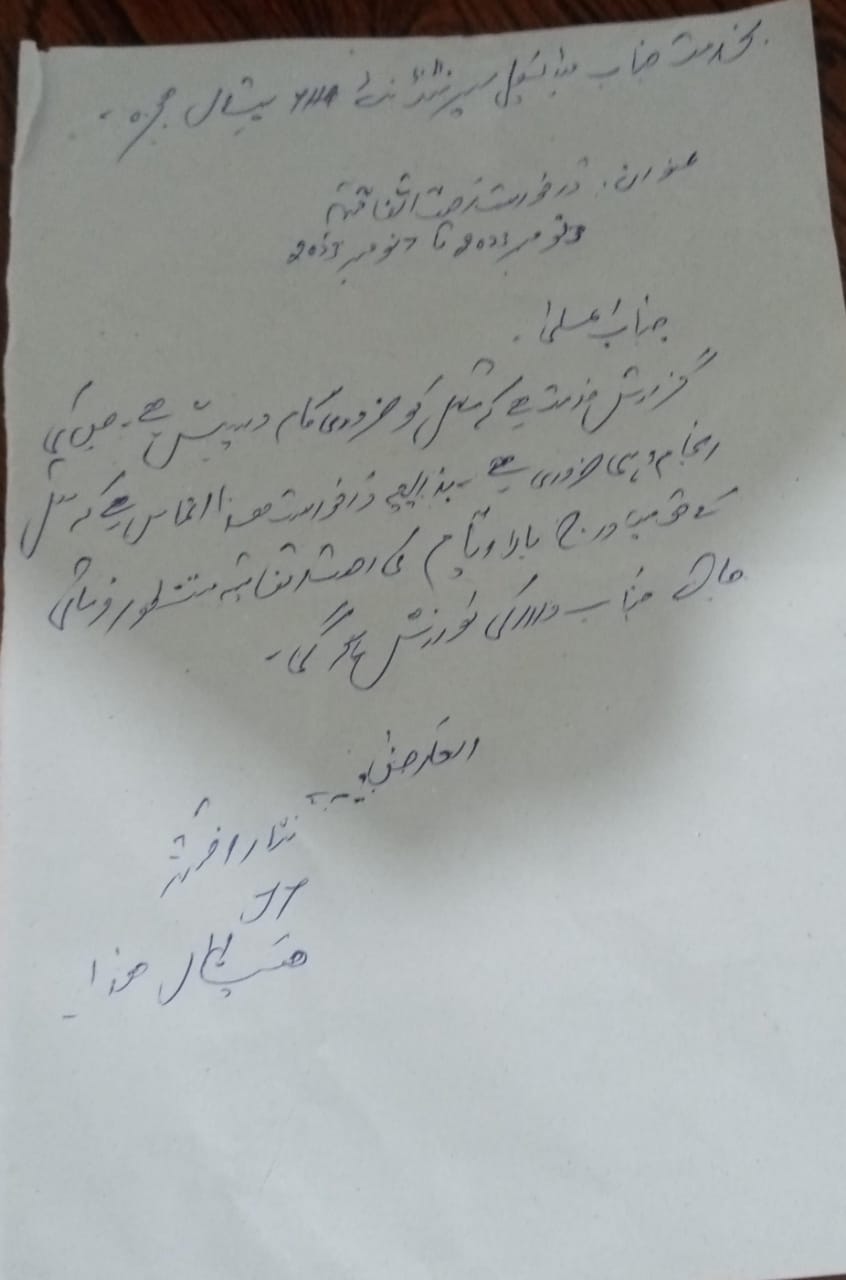 بخدمت جناب میڈیکل سپرنٹنڈنٹ THQ ہسپتال حجرہ۔
عنوان: درخواست رخصت اتفاقیہ
3 نومبر 2023 تا 7 نومبر 2023
جناب اعلیٰ!
گزارش خدمت ہے کہ سائل کو ضروری کام درپیش ہے۔ جس کی
انجام دہی ضروری ہے۔ بذریعہ درخواست ھذا التماس ہے کہ سائل
کے درج بالا ایام کی رخصت اتفاقیہ منظور فرمائی
جائے جناب والا کی نوازش ہو گی۔
العارض
نثار
JT
ہسپتال ھذا۔